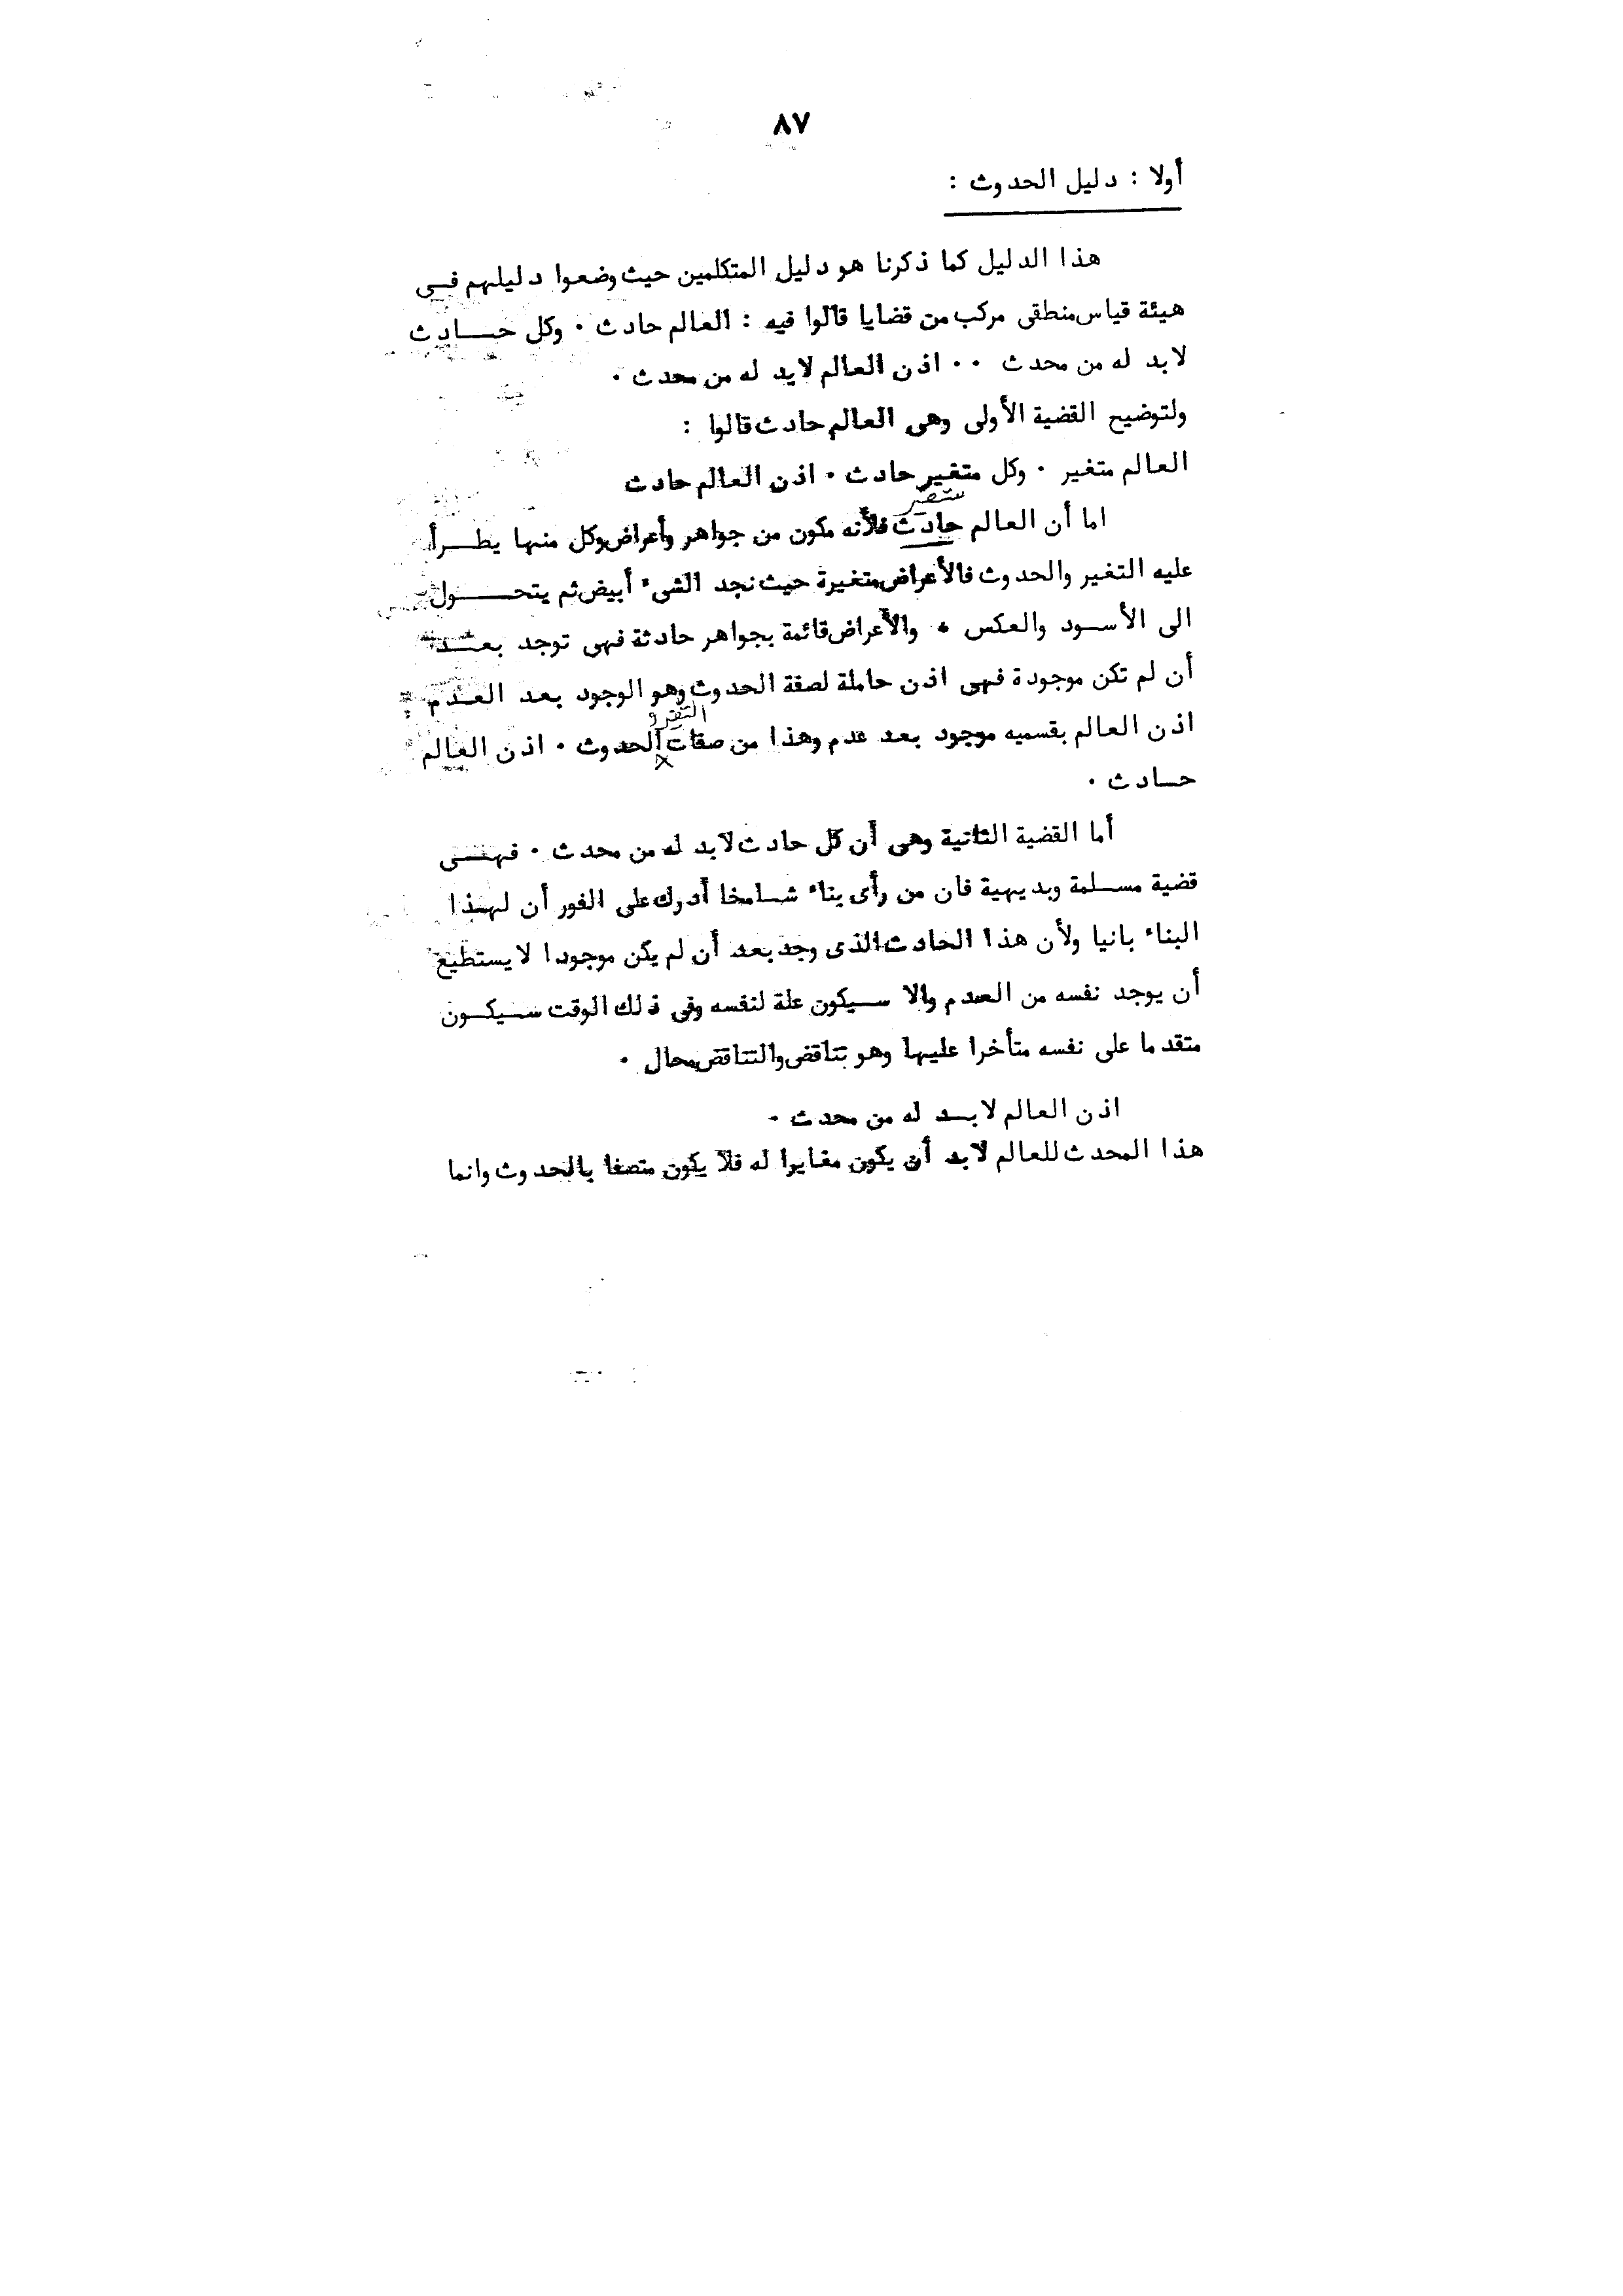 ٨٧
أولا : دليل الحدوث :
هذا الدليل كما ذكرنا هو دليل المتكلمين حيث وضعوا دليلهم فى
هيئة قياس منطقى مركب من قضايا قالوا فيه : العالم حادث ٠ وكل حادث
لابد له من محدث ٠٠ اذن العالم لابد له من محدث ٠
ولتوضيح القضية الأولى وهى العالم حادث قالوا :
العالم متغير ٠ وكل متغير حادث ٠ اذن العالم حادث
متغير
اما أن العالم حادث فلأنه مكون من جواهر وأعراض وكل منها يطرأ
عليه التغير والحدوث فالأعراض متغيرة حيث نجد الشىء أبيض ثم يتحول
الى الأسود والعكس ، والأعراض قائمة بجواهر حادثة فهى توجد بعد
أن لم تكن موجودة فهى اذن حاملة لصفة الحدوث وهو الوجود بعد العدم
التغير و
اذن العالم بقسميه موجود بعد عدم وهذا من صفات الحدوث ٠ اذن العالم
حادث ٠
أما القضية الثانية وهى أن كل حادث لابد له من محدث ٠ فهى
قضية مسلمة وبديهية فان من رأى بناء شامخا أدرك على الفور أن لهذا
البناء بانيا ولأن هذا الحادث الذى وجد بعد أن لم يكن موجودا لا يستطيع
أن يوجد نفسه من العدم والا سيكون علة لنفسه وفى ذلك الوقت سيكون
متقدما على نفسه متأخرا عليها وهو تناقض والتناقض محال ٠
اذن العالم لابد له من محدث ٠
هذا المحدث للعالم لابد أن يكون مغايرا له فلا يكون متصفا بالحدوث وانما